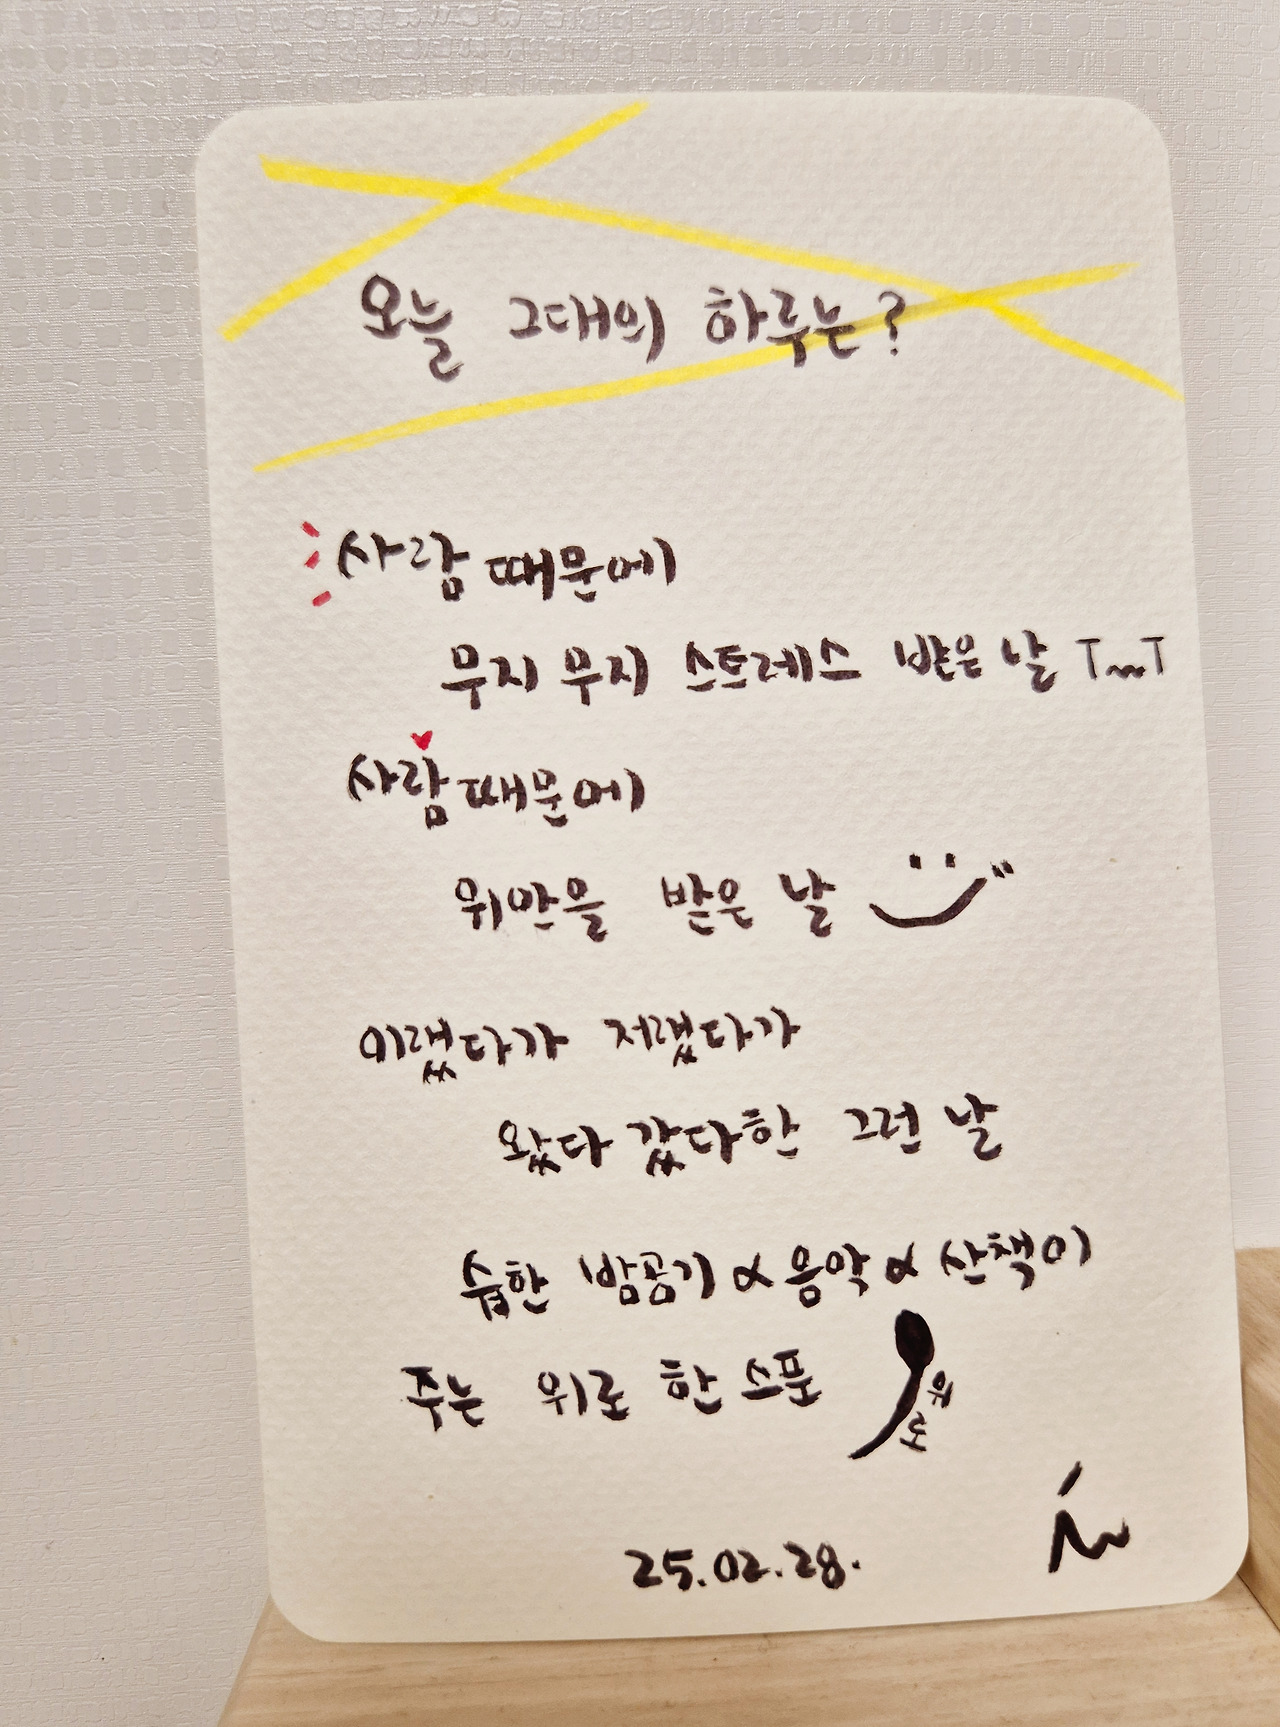 오늘 그대의 하루는?
사람 때문에
무지 무지 스트레스 받은 날 T^^T
사람 때문에
위안을 받은 날
이랬다가 저랬다가
왔다 갔다한 그런 날
습한 밤공기 & 음악 & 산책이
주는 위로 한 스푼
위로
25.02.28.